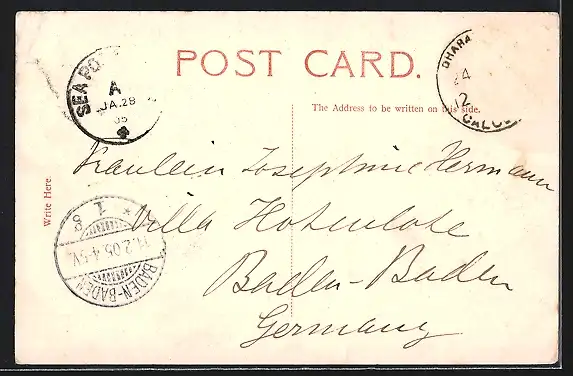 POST CARD.
The Address to be written on this side.
Write Here.
SEA PO
A
JA.28
05
DHARA
24
12
CALCU
Fräulein Josephine Hermann
Villa Hohenlohe
Baden-Baden
Germany
1
.2.05.4-5
BADEN-BADEN